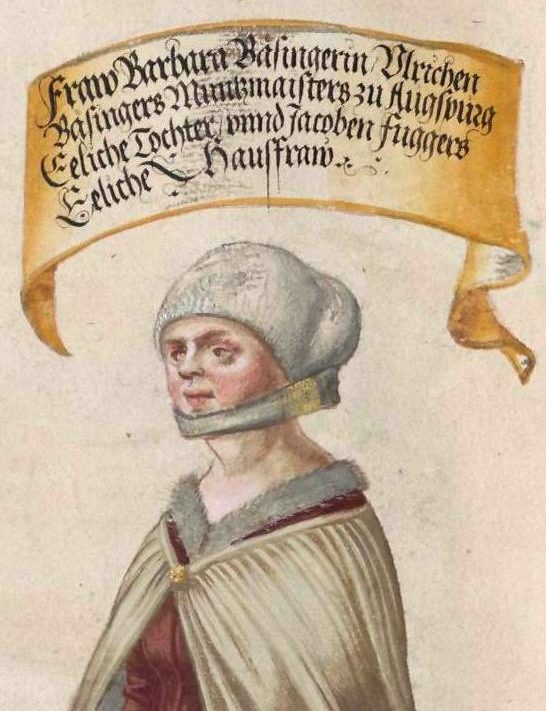 Fraw Barbara Bäsingerin, Ulrichen
Bäsingers Muntzmaisters zu Augspurg
Eeliche Tochter, vnnd Jacoben Fuggers
Eeliche Hausfraw.